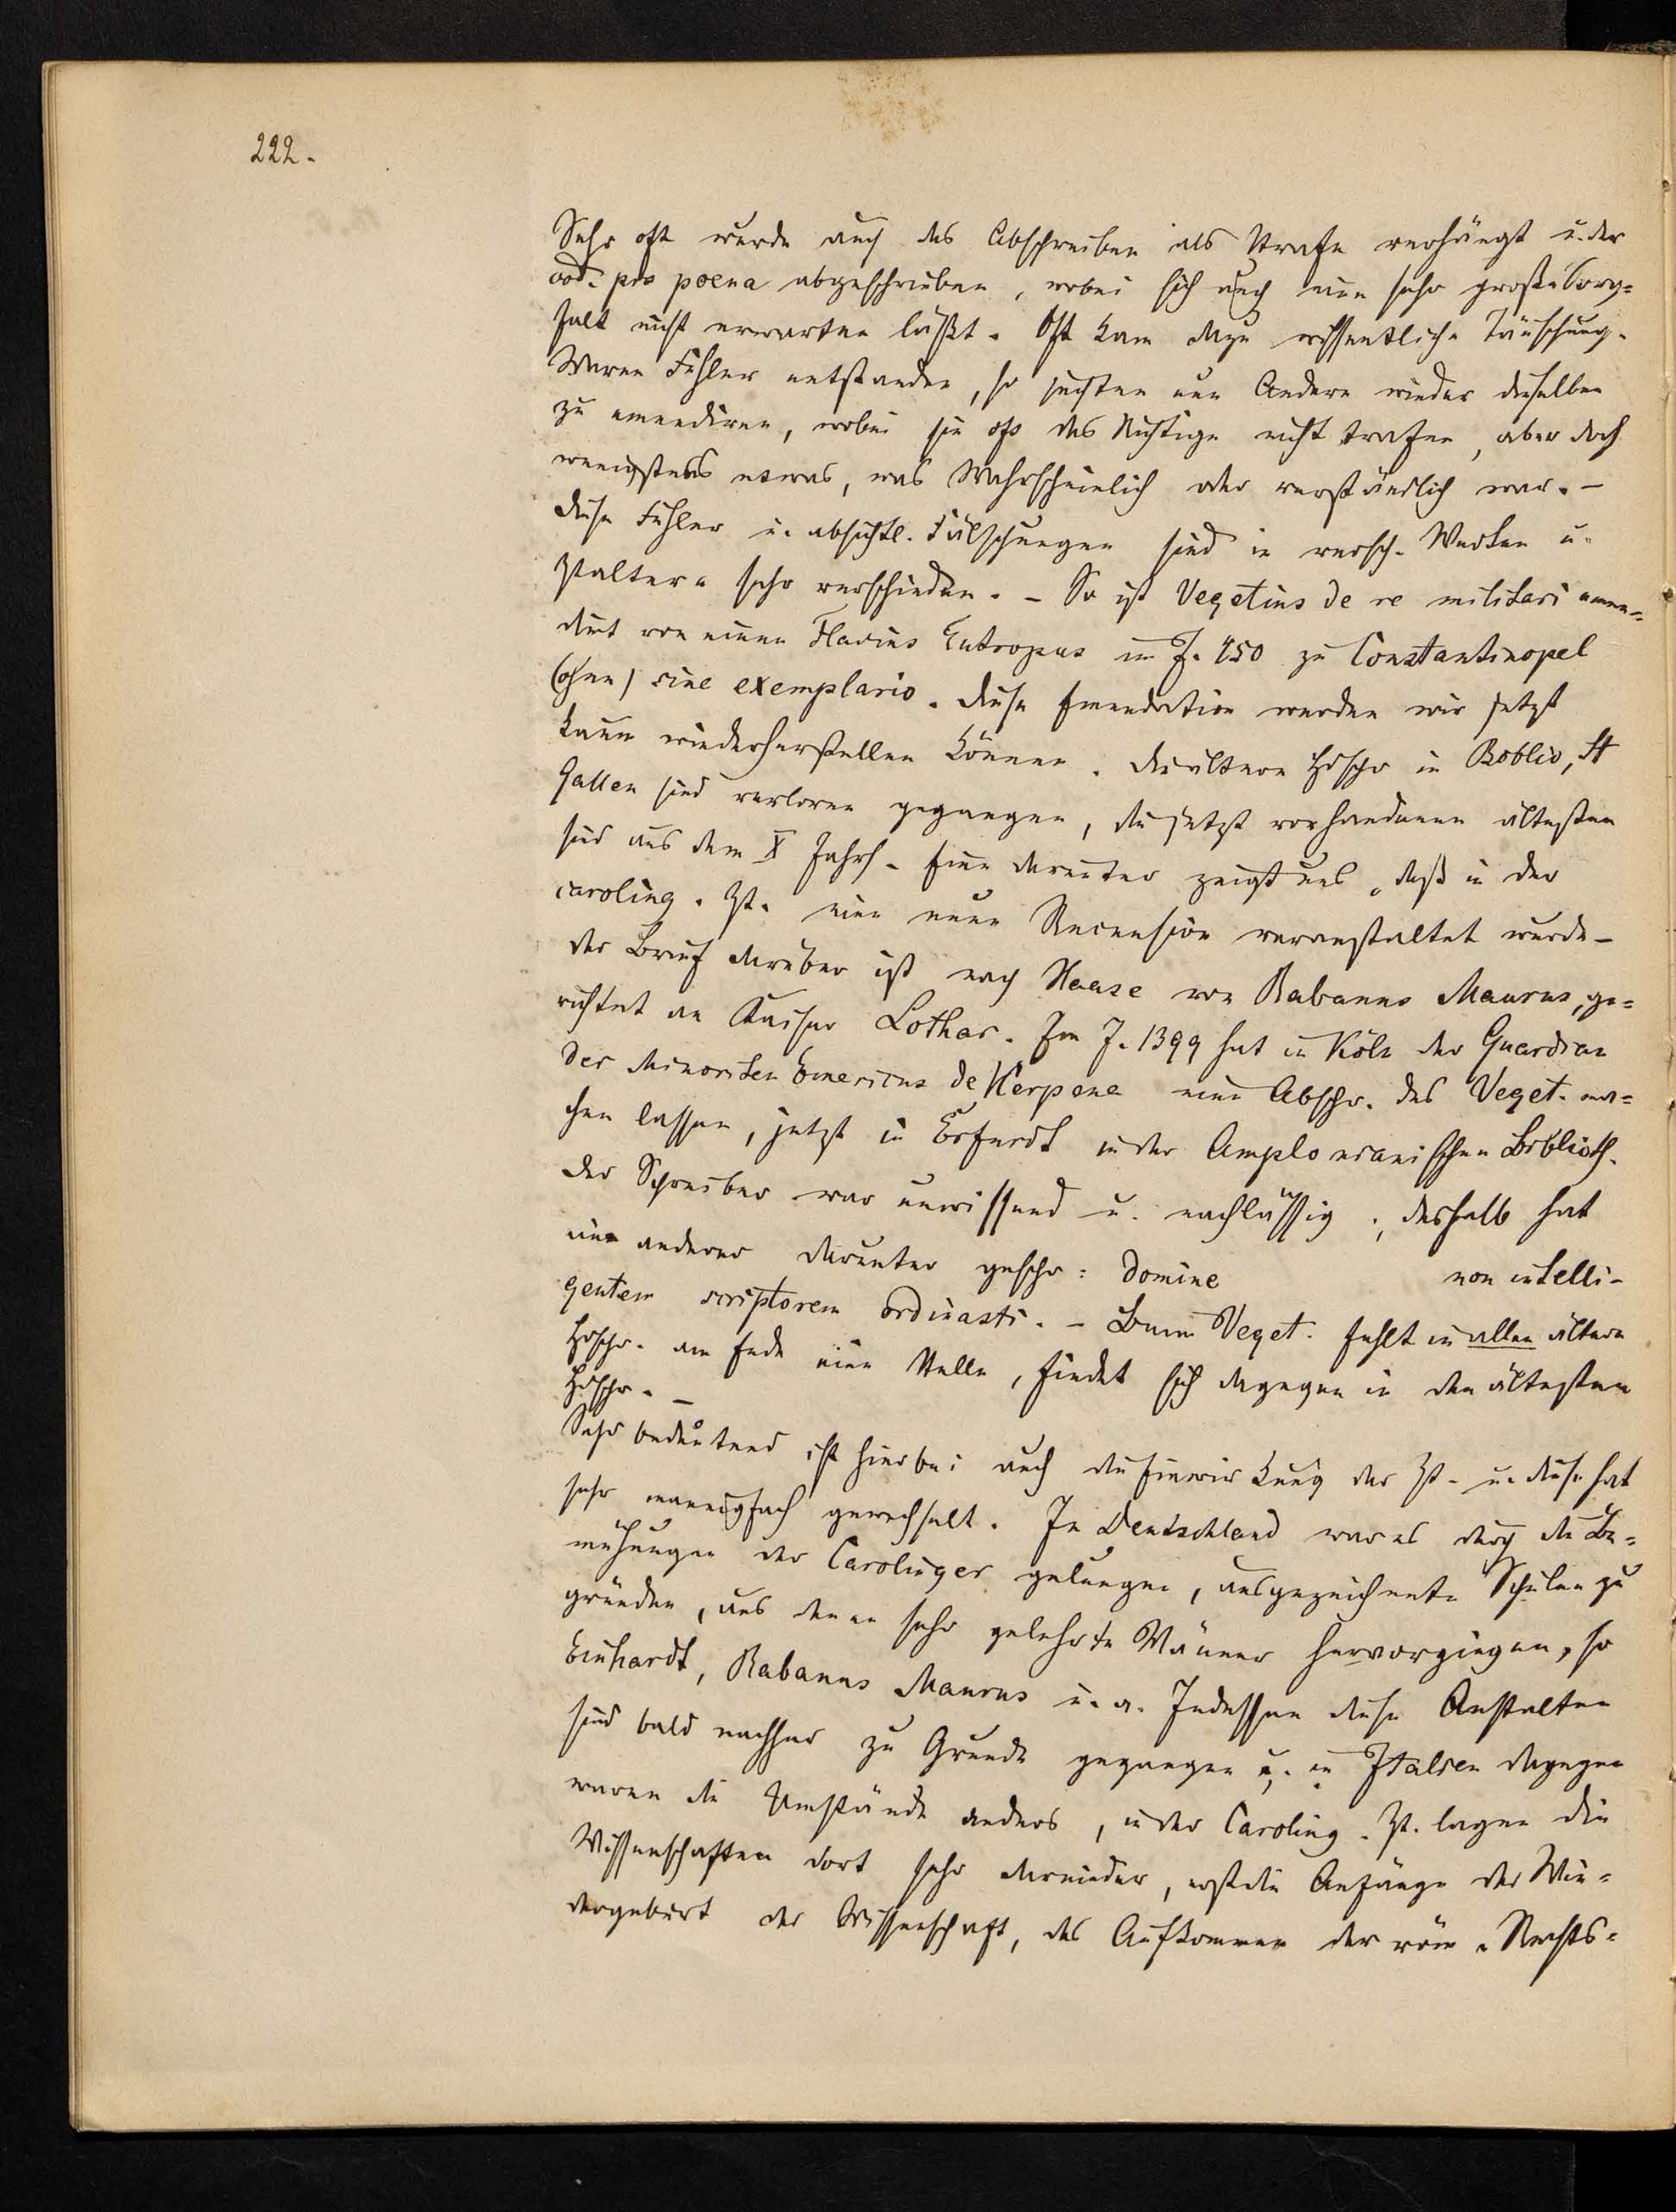 222.
Sehr oft wurde auch das Abschreiben als Strafe verhängt u. der
cod. pro poena abgeschrieben, wobei sich auch eine sehr große Sorg=
falt nicht erwarten läßt. Oft kam dazu wissentliche Täuschung.
Waren Fehler entstanden, so suchten nun Andere wieder dieselben
zu emendiren, wobei sie oft das Richtige nicht trafen, aber doch
wenigstens etwas, was Wahrscheinlich oder verständlich war. –
Diese Fehler u. absichtl. Fälschungen sind in versch. Werken u.
Ztaltern sehr verschieden. – So ist Vegetius de re militari emen=
dirt von einem Flavius Eutropus im J. 450 zu Constantinopel
(ohne) sine exemplario. Diese Emendation werden wir jetzt
kaum wiederherstellen können. Die ältern Hdschr in Boblio, St
Gallen sind verloren gegangen, die jetzt vorhandenen ältesten
sind aus dem X Jahrh. Eine darunter zeigt uns, daß in der
caroling. Zt. eine neue Recension veranstaltet wurde –
der Brief darüber ist nach Haase von Rabanus Maurus, ge=
richtet an Kaiser Lothar. Im J. 1399 hat in Köln der Guardian
der Minoriten Emericus de Kerpena eine Abschr. des Veget. ma=
chen lassen, jetzt in Erfurdt in der Amplonianischen Biblioth.
Der Schreiber war unwissend u. nachlässig; deshalb hat
ein anderer darunter geschr: Domine non intelli-
gentem scriptorem ordinasti. – Beim Veget. fehlt in allen ältern
Hdschr. am Ende eine Stelle, findet sich dagegen in den ältesten
Hdschr. –
Sehr bedeutend ist hierbei auch die Einwirkung der Zt. u. diese hat
sehr mannigfach gewechselt. In Deutschland war es durch die Be=
mühungen der Caroliger gelungen, ausgezeichnete Schulen zu
gründen, aus denen sehr gelehrte Männer hervorgingen, so
Einhardt, Rabanus Maurus u. a. Indessen diese Anstalten
sind bald nachher zu Grunde gegangen u. in Italien dagegen
waren die Umstände anders, in der Caroling. Zt. lagen die
Wissenschaften dort sehr darnieder, erst die Anfänge der Wie=
dergeburt der Wissenschaft, das Aufkommen der röm. Rechts=